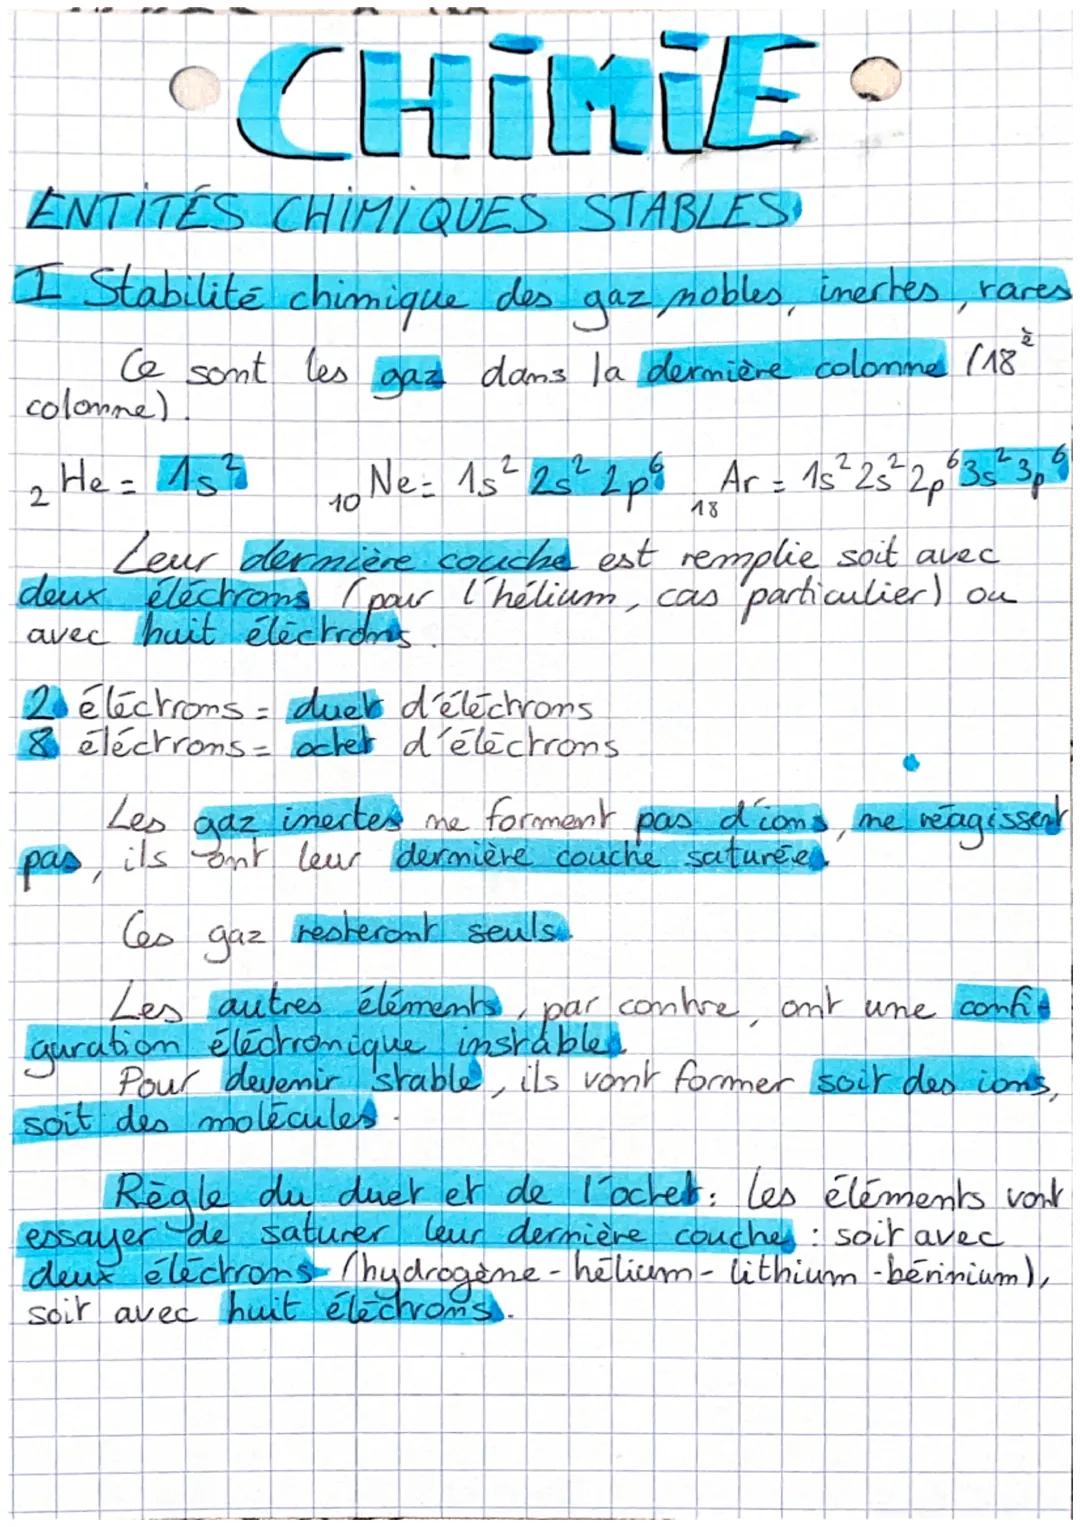 CHiMiE
ENTITÉS CHIMIQUES STABLES
I Stabilité chimique des gaz nobles, inertes, rares
Ce sont les gaz dans la dernière colonne (18è
colonne).
₂He = 1s² ₁₀Ne = 1s² 2s² 2p⁶ ₁₈Ar = 1s² 2s² 2p⁶ 3s² 3p⁶
Leur dernière couche est remplie soit avec
deux éléctrons (pour l'hélium, cas particulier) ou
avec huit éléctrons.
2 éléctrons = duet d'éléctrons
8 éléctrons = octet d'éléctrons
Les gaz inertes ne forment pas d'ions, ne réagissent
pas, ils ont leur dernière couche saturée.
Ces gaz resteront seuls.
Les autres éléments, par contre, ont une confi-
guration éléctronique instable.
Pour devenir stable, ils vont former soit des ions,
soit des molécules.
Règle du duet et de l'octet : Les éléments vont
essayer de saturer leur dernière couche : soit avec
deux éléctrons (hydrogène - hélium - lithium - bérinium),
soit avec huit éléctrons.